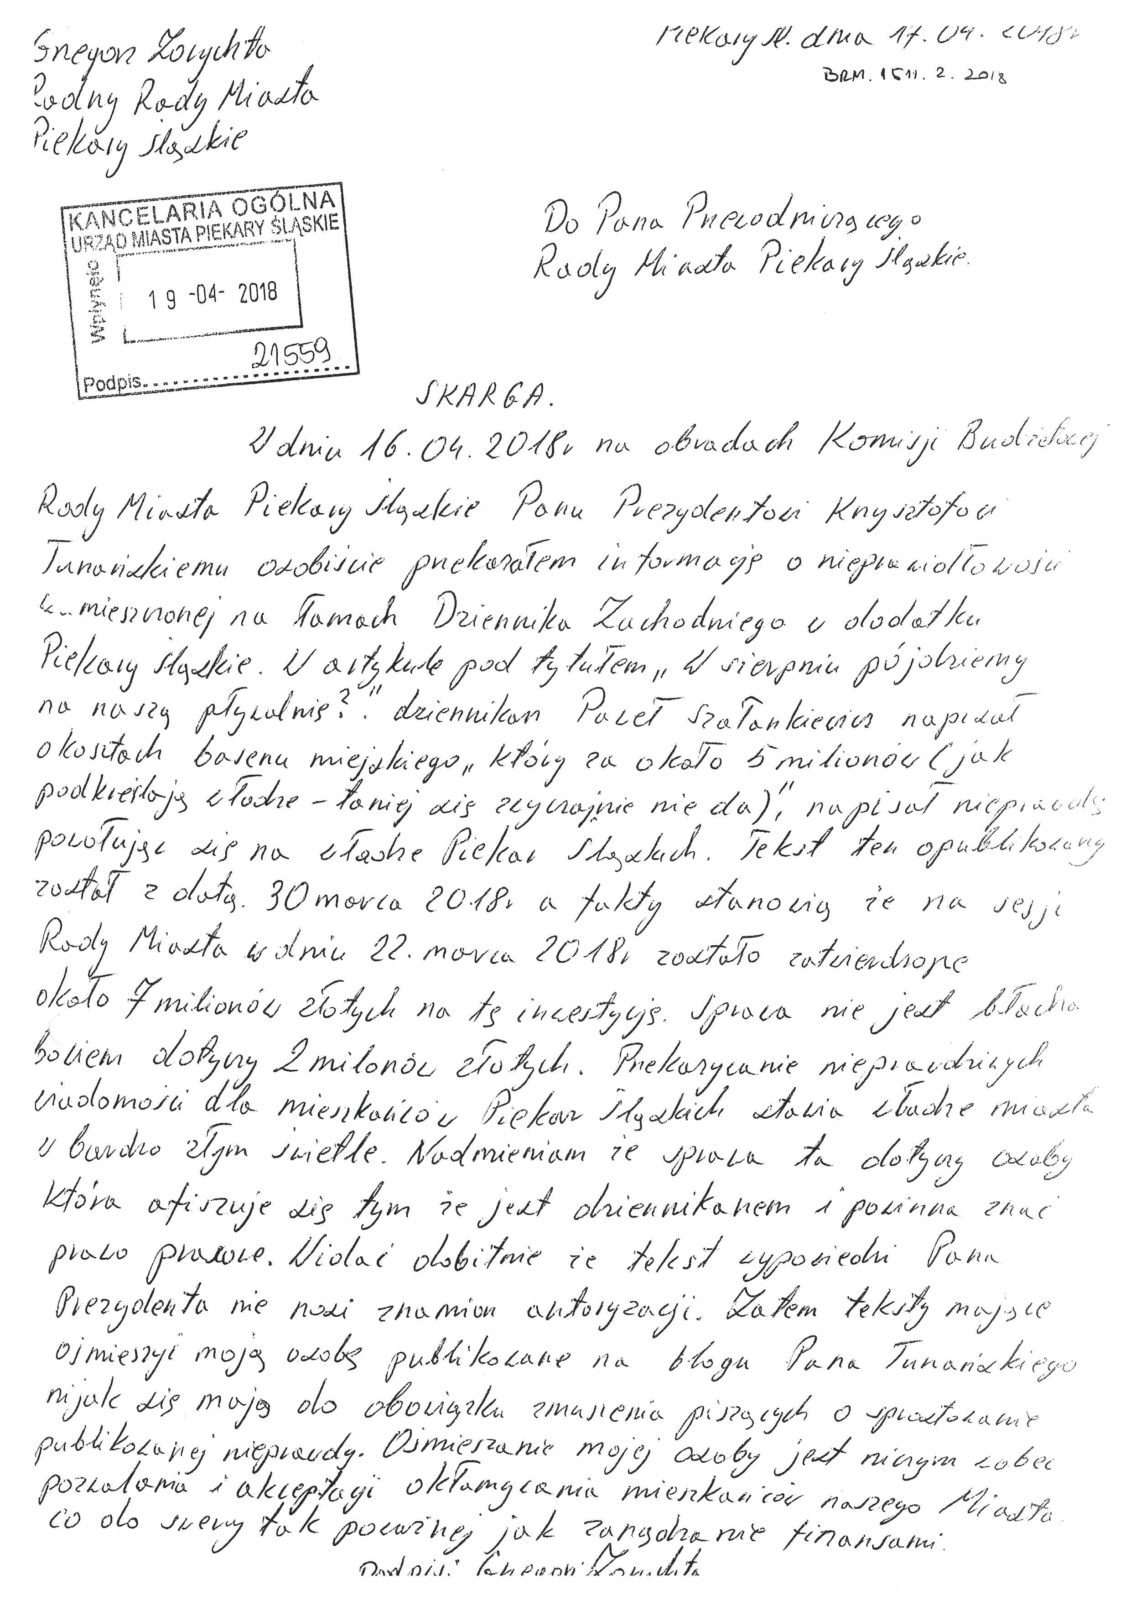 Grzegorz Zorychta
Radny Rady Miasta
Piekary Śląskie
Piekary Śl. dnia 17.04.2018r
BRM.1511.2.2018
KANCELARIA OGÓLNA
URZĄD MIASTA PIEKARY ŚLĄSKIE
Wpłynęło
19 -04- 2018
21559
Podpis
Do Pana Przewodniczącego
Rady Miasta Piekary Śląskie.
SKARGA.
W dniu 16.04.2018r na obradach Komisji Budżetowej
Rady Miasta Piekary Śląskie Panu Prezydentowi Krzysztofowi
Turzańskiemu osobiście przekazałem informację o nieprawidłowości
zamieszczonej na łamach Dziennika Zachodniego w dodatku
Piekary Śląskie. W artykule pod tytułem „W sierpniu pójdziemy
na naszą pływalnię?". dziennikarz Paweł Szałankiewicz napisał
o kosztach basenu miejskiego „który za około 5 milionów (jak
podkreślają władze – taniej się zwyczajnie nie da)", napisał nieprawdę
powołując się na władze Piekar Śląskich. Tekst ten opublikowany
został z datą. 30 marca 2018r a fakty stanowią że na sesji
Rady Miasta w dniu 22. marca 2018r zostało zatwierdzone
około 7 milionów złotych na tę inwestycję. Sprawa nie jest błacha
bowiem dotyczy 2 milonów złotych. Przekazywanie nieprawdziwych
wiadomości dla mieszkańców Piekar Śląskich stawia władze miasta
w bardzo złym świetle. Nadmieniam że sprawa ta dotyczy osoby
która afiszuje się tym że jest dziennikarzem i powinna znać
prawo prasowe. Widać dobitnie że tekst wypowiedzi Pana
Prezydenta nie nosi znamion autoryzacji. Zatem teksty mające
ośmieszyć moją osobę publikowane na blogu Pana Turzańskiego
nijak się mają do obowiązku zmuszenia piszących o sprostowanie
publikowanej nieprawdy. Ośmieszanie mojej osoby jest niczym wobec
pozwalania i akceptacji okłamywania mieszkańców naszego Miasta
co do sfery tak poważnej jak zarządzanie finansami.
Podpis: Grzegorz Zorychta